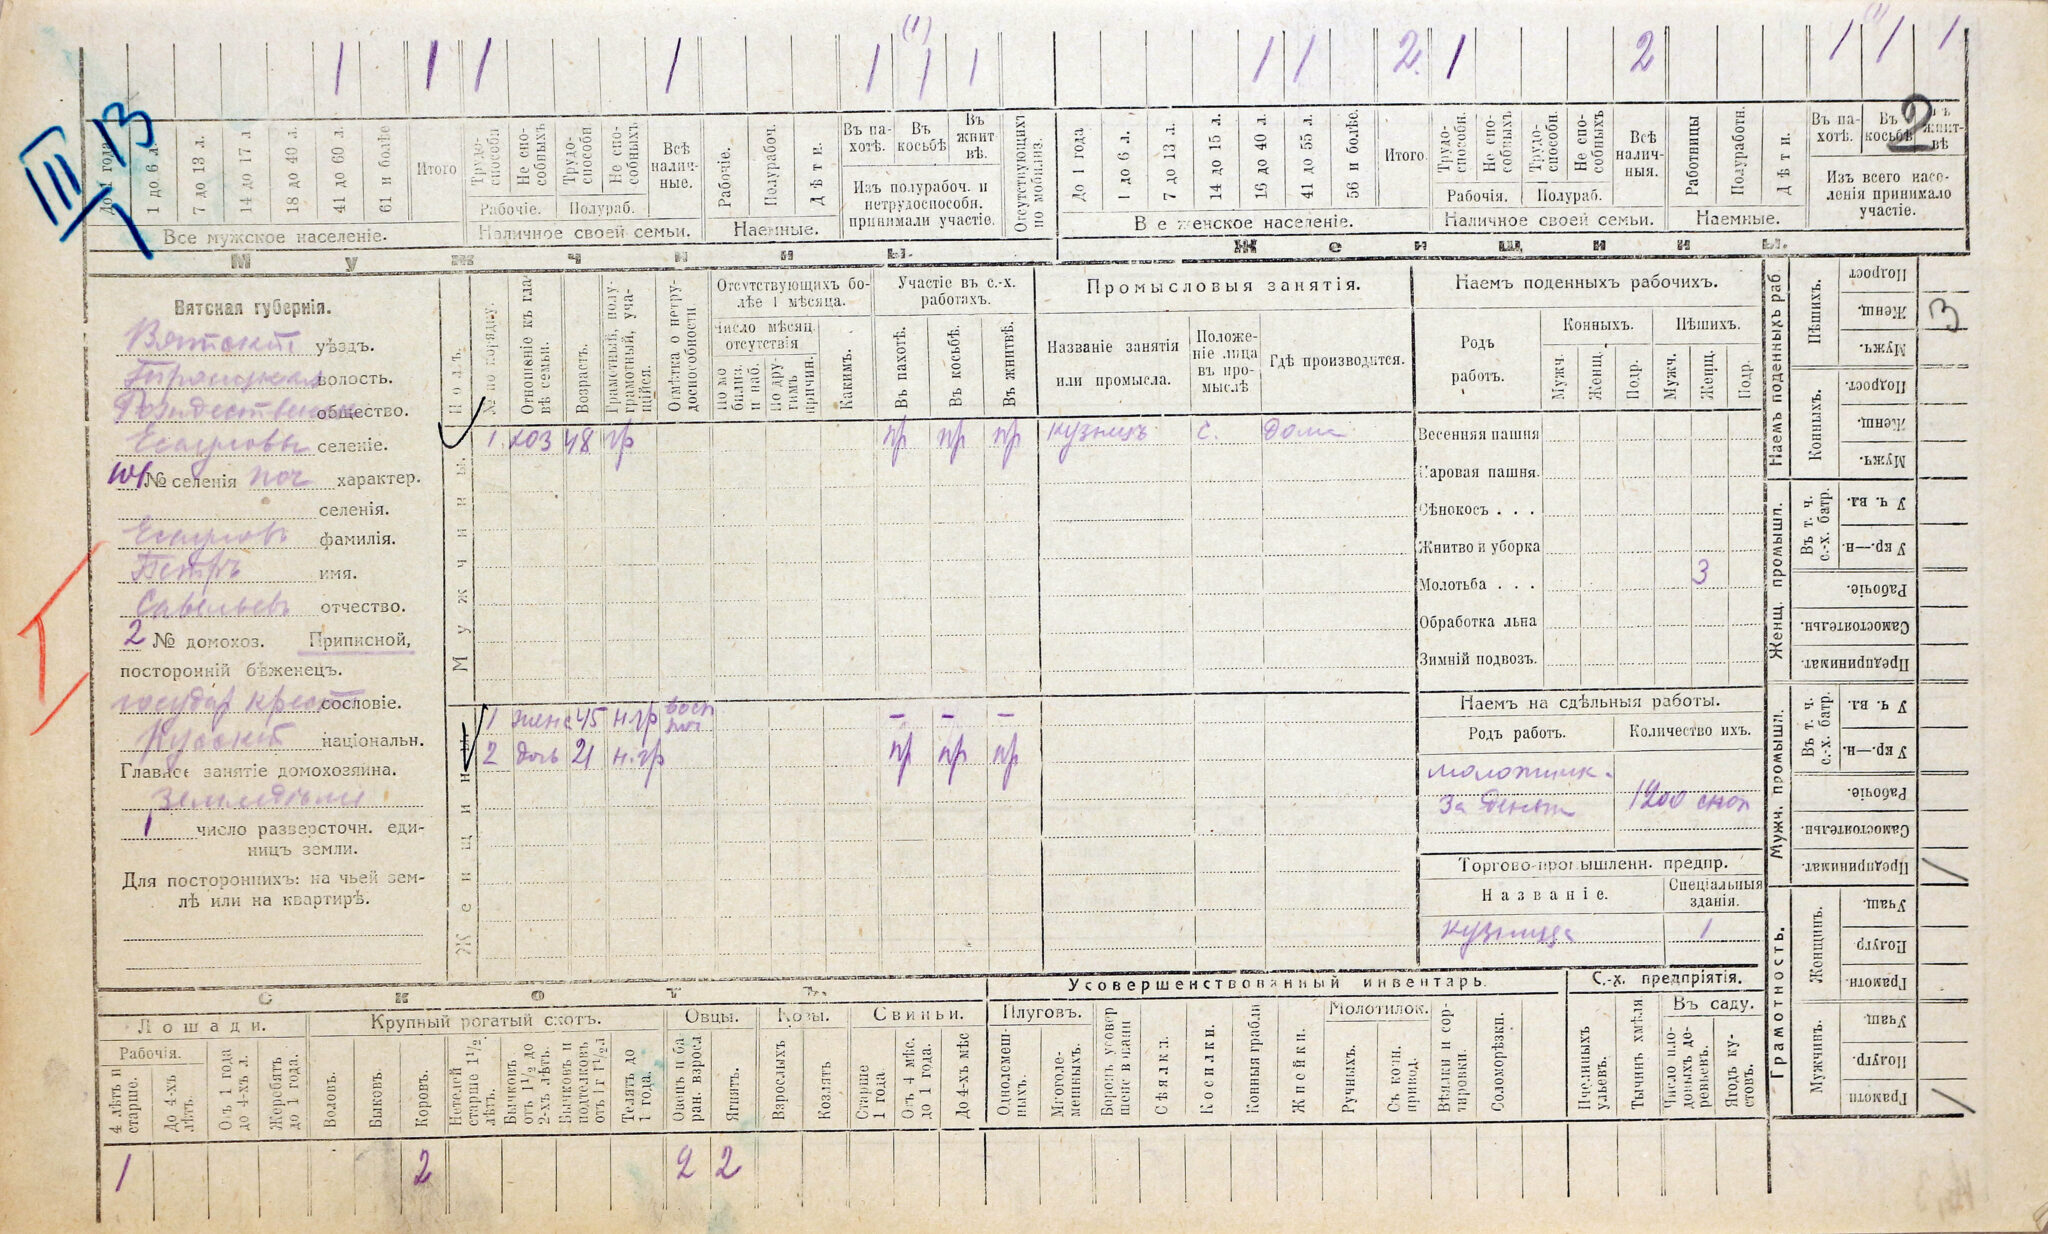 1 1 1 1 1 (1) 1 1 1 1 2 1 2 1 (1) 1 1
III 13
2
До 1 года
1 до 6 л.
7 до 13 л.
14 до 17 л.
18 до 40 л.
41 до 60 л.
61 и болѣе
Итого
Трудо-способн.
Не спо-собныхъ
Трудо-способн.
Не спо-собныхъ
Рабочіе. Полураб.
Всѣ налич-ные.
Рабочіе.
Полурабоч.
Дѣти.
Въ па-хотѣ.
Въ косьбѣ
Въ жнит вѣ.
Изъ полурабоч. и нетрудоспособн. принимали участіе.
Отсутствующихъ по мобилиз.
До 1 года
1 до 6 л.
7 до 13 л.
14 до 15 л.
16 до 40 л.
41 до 55 л.
56 и болѣе.
Итого.
Трудо-способн.
Не спо-собныхъ
Трудо-способн.
Не спо-собныхъ
Рабочія. Полураб.
Всѣ налич-ныя.
Работницы
Полуработн.
Дѣти.
Въ па-хотѣ.
Въ косьбѣ
Въ жнит-вѣ
Изъ всего насе-ленія принимало участіе.
Все мужское населеніе. Наличное своей семьи. Наемные.
В е женское населеніе. Наличное своей семьи. Наемные.
Мужчины. Женщины.
Вятская губернія.
Вятскій уѣздъ.
Троицкая волость.
Рождественское общество.
Есауловы селеніе.
101 № селенія поч характер.
селенія.
Есауловъ фамилія.
Петръ имя.
Савельевъ отчество.
2 № домохоз. Приписной,
посторонній бѣженецъ.
государ крест сословіе.
Русскій національн.
Главное занятіе домохозяина.
Земледѣліе
1 число разверсточн. еди-
ницъ земли.
Для постороннихъ: на чьей зем-
лѣ или на квартирѣ.
I
Полъ.
№ по порядку.
Отношеніе къ гла-вѣ семьи.
Возрастъ.
Грамотный, полу-грамотный, уча-щійся.
Отмѣтка о нетру-доспособности
Отсутствующихъ бо-лѣе 1 мѣсяца.
Число мѣсяц. отсутствія
По мо билиз. и наб.
По дру-гимъ причин.
Какимъ.
Участіе въ с.-х. работахъ.
Въ пахотѣ.
Въ косьбѣ.
Въ жнитвѣ.
Промысловыя занятія.
Названіе занятія или промысла.
Положе-ніе лица въ про-мыслѣ
Гдѣ производится.
Мужчины.
1 хоз 48 гр пр пр пр кузнецъ с. дома
Женщины
1 жена 45 н.гр восп поч – – –
2 дочь 21 н.гр пр пр пр
Наемъ поденныхъ рабочихъ.
Родъ работъ.
Конныхъ. Пѣшихъ.
Мужч. Женщ. Подр. Мужч. Женщ. Подр.
Весенняя пашня
Паровая пашня.
Сѣнокосъ . . .
Жнитво и уборка
Молотьба . . . 3
Обработка льна
Зимній подвозъ.
Наемъ на сдѣльныя работы.
Родъ работъ. Количество ихъ.
за деньги 1200 сноп
Торгово-промышленн. предпр.
Названіе. Спеціальныя зданія.
кузница 1
Наемъ поденныхъ раб
Пѣшихъ.
Подрост
Женщ. 3
Мужч.
Конныхъ.
Подрост.
Женщ.
Мужч.
Женщ. промышл.
Въ т. ч. с.-х. батр.
У ч. вл.
У кр.—н.
Рабочіе.
Самостоятельн.
Предпринимат.
Мужч. промышл.
Въ т. ч. с.-х. батр.
У ч. вл.
У кр.—н.
Рабочіе.
Самостоятельн.
Предпринимат. 1
Грамотность.
Женщинъ.
Учащ.
Полугр
Грамотн.
Мужчинъ.
Учащ.
Полугр
Грамотн 1
Скотъ.
Лошади.
Рабочія.
4 лѣтъ и старше.
До 4-хъ лѣтъ.
Отъ 1 года до 4-хъ л.
Жеребятъ до 1 года.
Крупный рогатый скотъ.
Воловъ.
Быковъ
Коровъ.
Нетелей старше 1½ лѣтъ.
Бычковъ отъ 1½ до 2-хъ лѣтъ.
Бычковъ и подтелковъ отъ 1 г 1½л
Телятъ до 1 года.
Овцы.
Овецъ и ба ран. взросл
Ягнятъ.
Козы.
Взрослыхъ
Козлятъ
Свиньи.
Старше 1 года.
Отъ 4 мѣс. до 1 года.
До 4-хъ мѣс
Усовершенствованный инвентарь.
Плуговъ.
Одполемеш-ныхъ.
Многоле-мешныхъ.
Боронъ усовер шенствованн
Сѣялкл.
Косилки.
Конныя грабли
Жнейки.
Молотилок.
Ручныхъ.
Съ конн. привод.
Вѣялки и сор-тировки.
Соломорѣзки.
С.-х. предпріятія.
Пчелиныхъ ульевъ.
Тычинъ хмѣля
Въ саду.
Число пло-доныхъ де-ревьевъ.
Ягод. ку-стовъ.
1 2 2 2